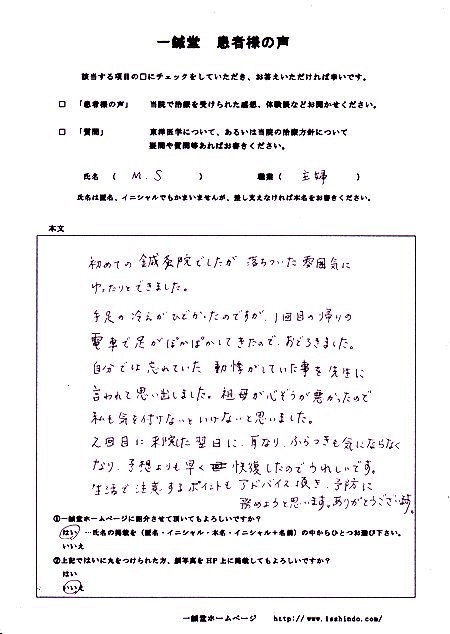 一鍼堂 患者様の声
該当する項目の□にチェックをしていただき、お答えいただければ幸いです。
□ 「患者様の声」 当院で治療を受けられた感想、体験談などお聞かせください。
□ 「質問」 東洋医学について、あるいは当院の治療方針について
疑問や質問等あればお書きください。
氏名 ( M.S ) 職業 ( 主婦 )
氏名は匿名、イニシャルでもかまいませんが、差し支えなければ本名をお書きください。
本文
初めての鍼灸院でしたが 落ちついた雰囲気に
ゆったりとできました。
手足の冷えがひどかったのですが、1回目の帰りの
電車で足がぽかぽかしてきたので、おどろきました。
自分では忘れていた 動悸がしていた事を先生に
言われて思い出しました。祖母が心ぞうが悪かったので
私も気を付けないといけないと思いました。
2回目に来院した翌日に、耳なり、ふらつきも気にならなく
なり、予想よりも早く 快復したのでうれしいです。
生活で注意するポイントもアドバイス頂き、予防に
務めようと思います。ありがとうございます。
①一鍼堂ホームページに紹介させて頂いてもよろしいですか？
はい …氏名の掲載を（匿名・イニシャル・本名・イニシャル＋名前）の中からひとつお選び下さい。
いいえ
②上記ではいに丸をつけられた方、顔写真をHP上に掲載してもよろしいですか？
はい
いいえ
一鍼堂ホームページ http://www.isshindo.com/